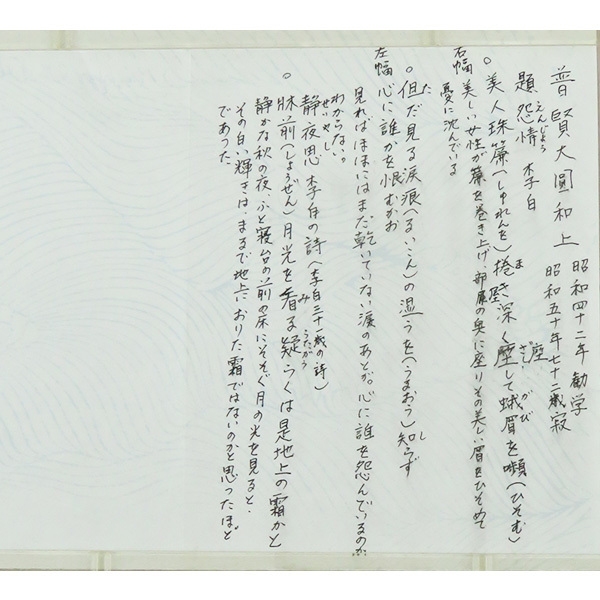 普賢大圓和上
昭和四十二年勧学
昭和五十年七十二歳寂
題 怨情 李白
えんじょう
○美人珠簾(しゅれんを)捲き深く坐して蛾眉を嚬(ひそむ)
ま
座
ざ
がび
右幅 美しい女性が簾を巻き上げ、部屋の奥に座りその美しい眉をひそめて
憂に沈んでいる
○但だ見る涙痕(るいこん)の湿うを(うるおう)知らず
た
し
左幅 心に誰かを恨むかお
見ればほほにはまだ乾いていない涙のあとが。心に誰を怨んでいるのか
わからない。
静夜思 李白の詩(李白三十一歳の詩)
せいやし
○牀前(しょうぜん)月光を看る疑らくは是地上の霜かと
み
うたがう
静かな秋の夜、ふと寝台の前の床にそそぐ月の光を見ると、
その白い輝きは、まるで地上におりた霜ではないのかと思ったほど
であった。